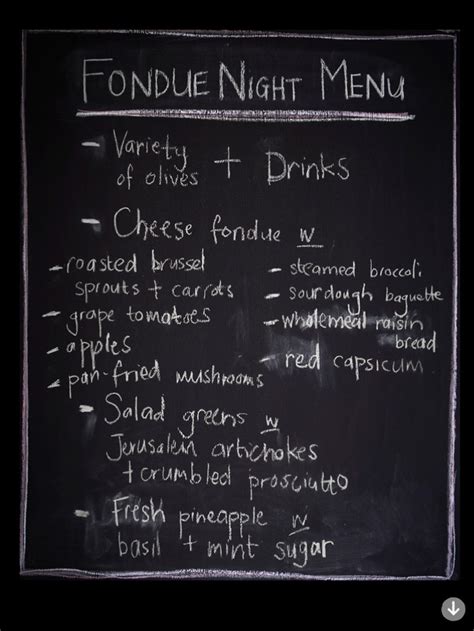 FONDUE NIGHT MENU
- Variety of olives + Drinks
- Cheese fondue w
- roasted brussel sprouts + carrots
- grape tomatoes
- apples
- pan-fried mushrooms
- steamed broccoli
- sourdough baguette
- wholemeal raisin bread
- red capsicum
- Salad greens w
Jerusalem artichokes
+ crumbled prosciutto
- Fresh pineapple w
basil + mint sugar